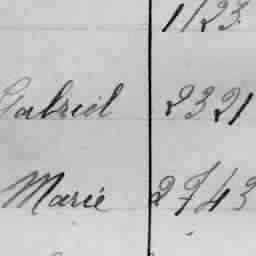 1123
Gabriel 2321
Marie 2743